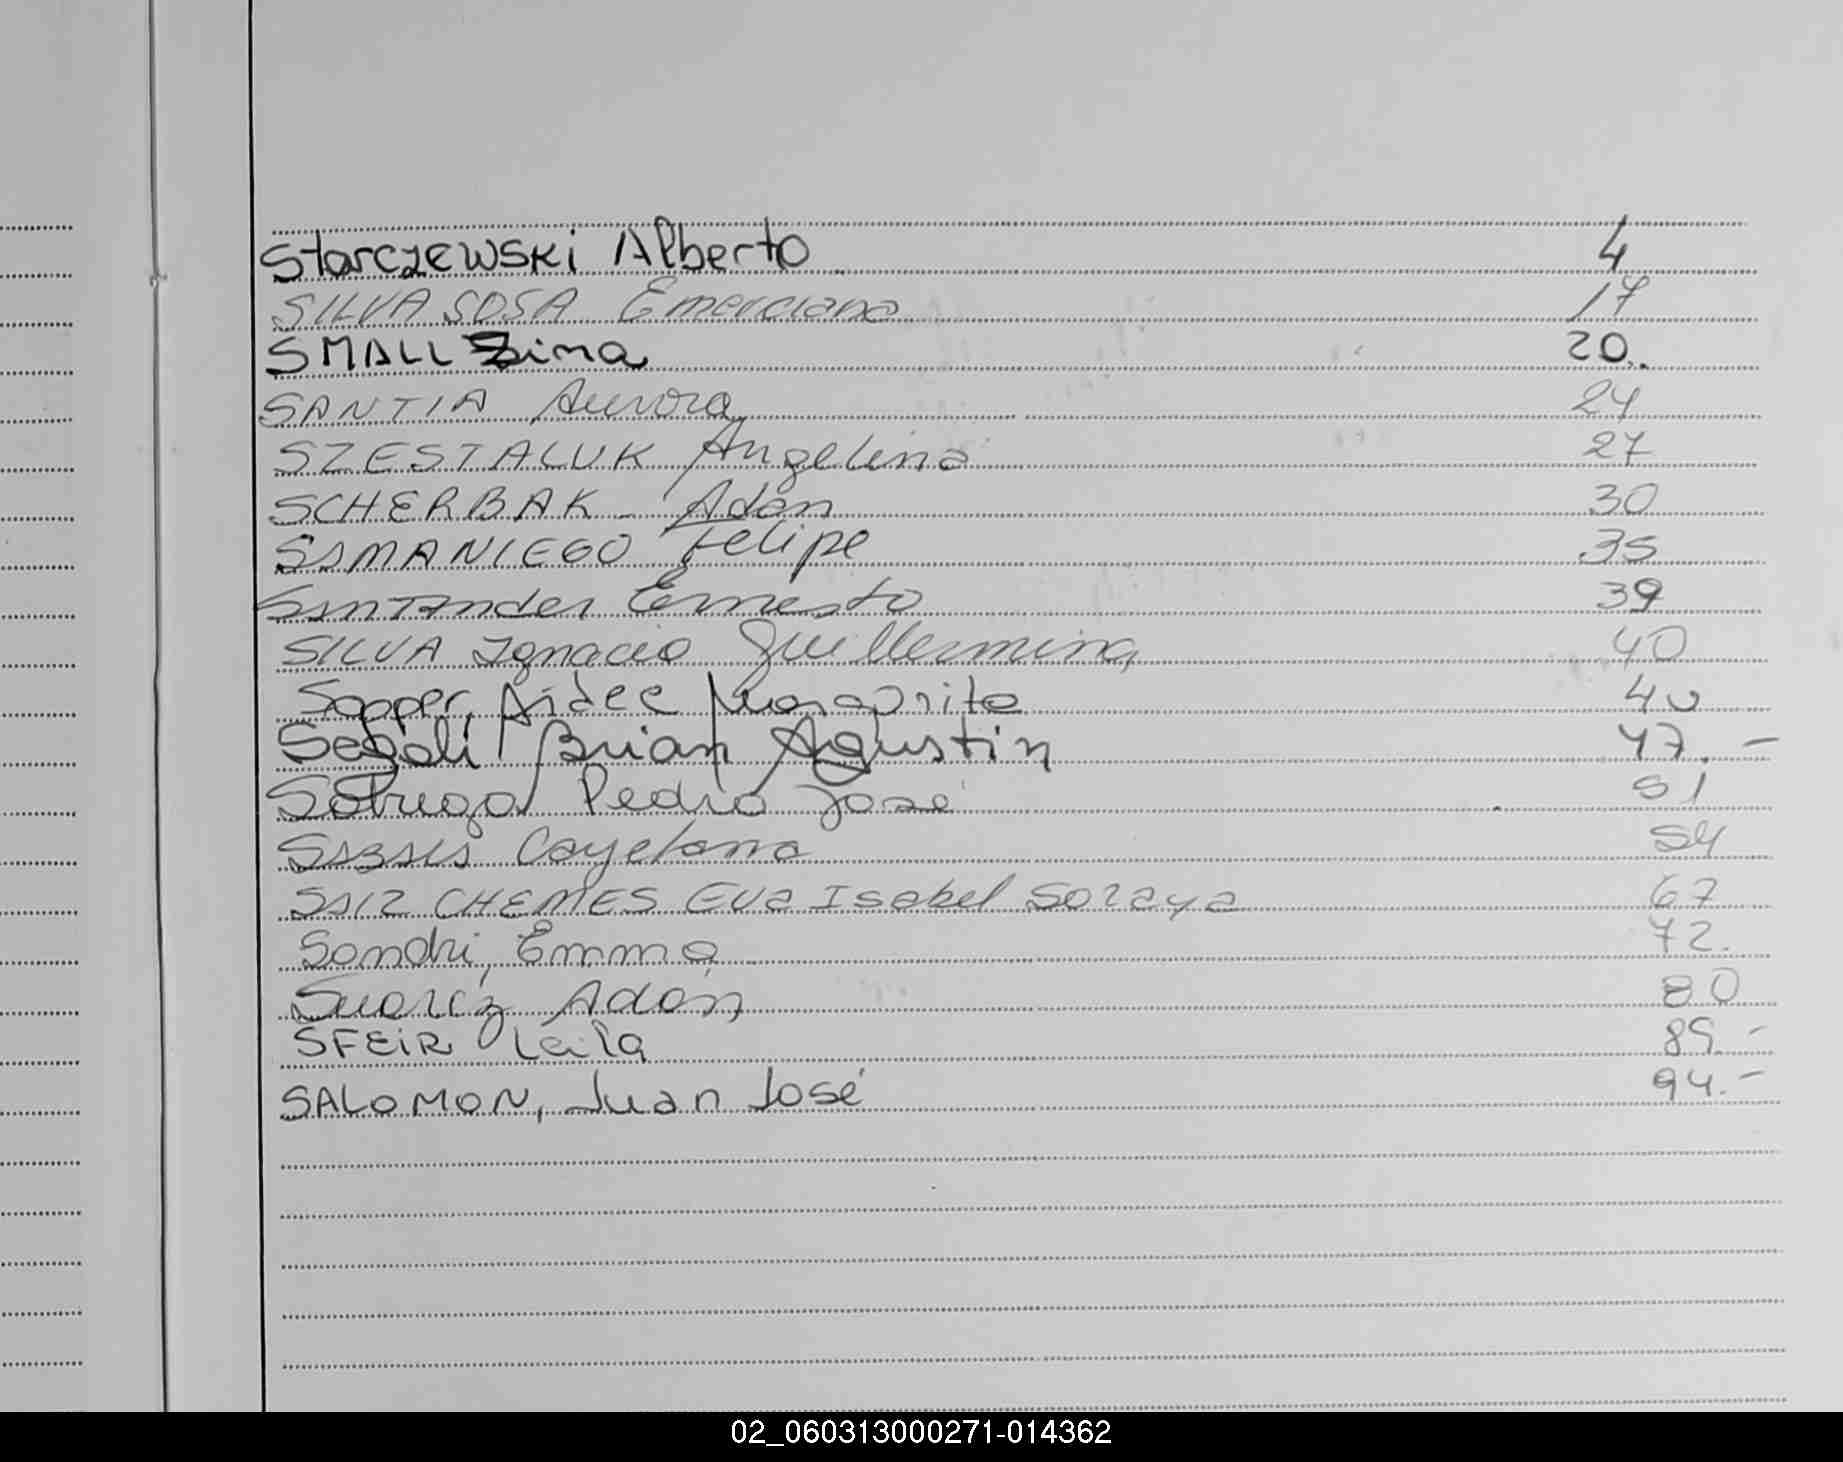 Starczewski Alberto 4
SILVA SOSA Emerciana 17
SMALL Zima 20.
SANTIA Aurora 24
SZESTALUK Angelina 27
SCHERBAK - Adan 30
SAMANIEGO Felipe 35
SANTANder Ernesto 39
SILVA Ignacio Guillermina 40
Sapper, Aidee Margarita 40
Segali Brian Agustin 47.-
Pedro José 51
Cayetana 54
SAIZ CHEMES Eva Isabel Soraya 67
Sandri, Emma 72.
Suarez Adan 80
SFEIR Leila 89.-
SALOMON, Juan José 94.-
02_060313000271-014362